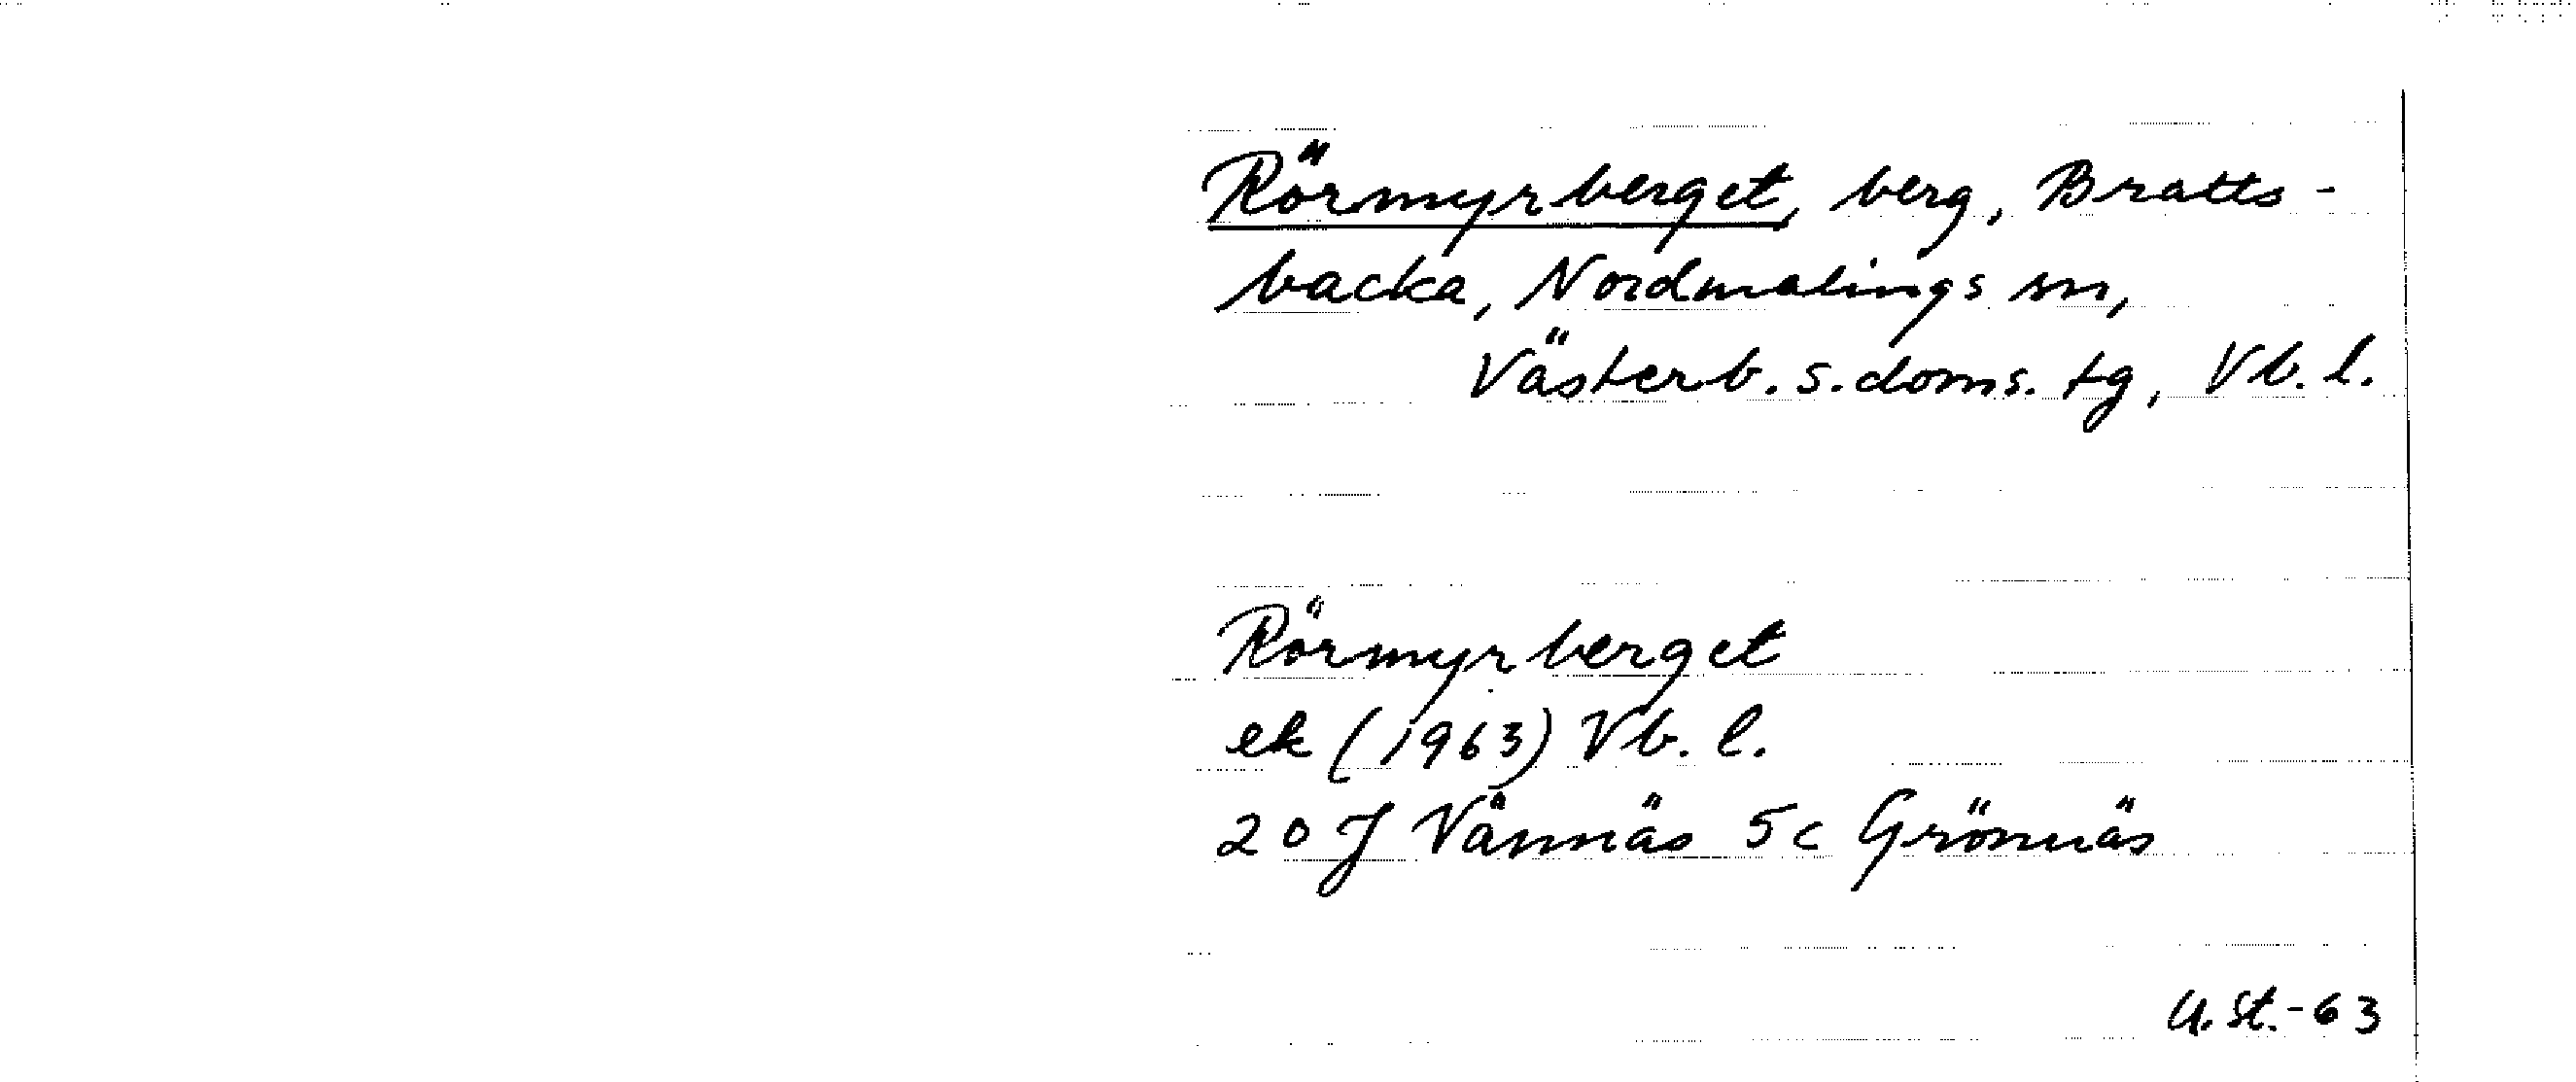 Rörmyrberget, berg, Bratts-
backa, Nordmalings sn,
Västerb. s. doms. tg, Vb. l.
Rörmyrberget
ek (1963) Vb. l.
20 J Vännäs 5c Grönnäs
U. St. -63